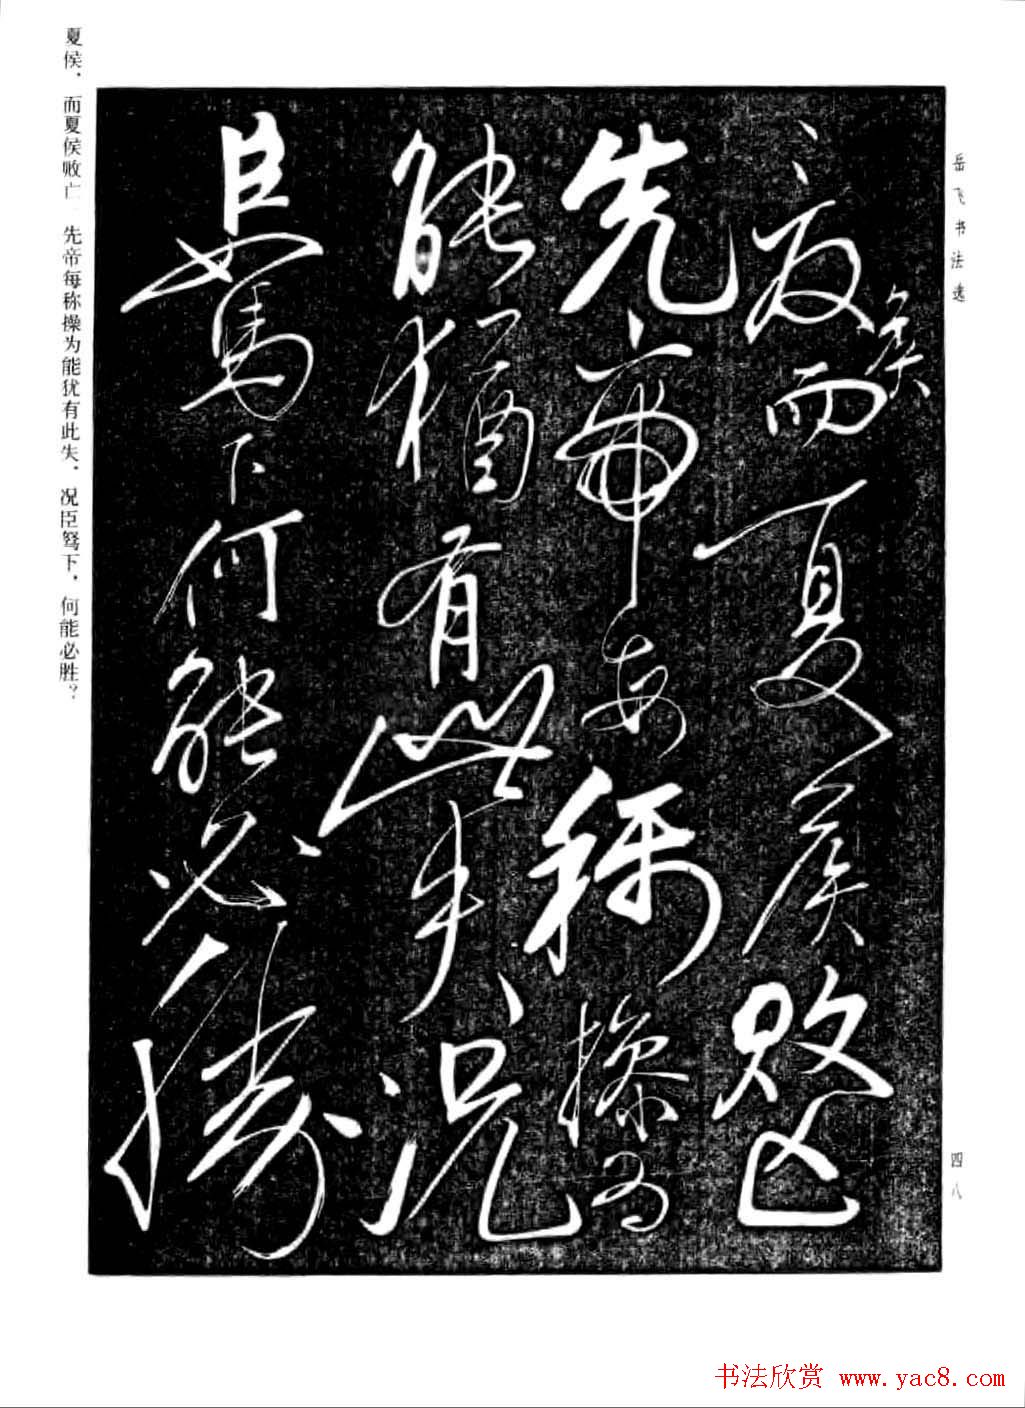 岳飞书法选
四八
夏侯而夏侯敗亡
先帝每稱操為
能猶有此失況
臣駑下何能必勝
夏侯，而夏侯败亡。先帝每称操为能犹有此失，况臣驽下，何能必胜？
书法欣赏 www.yac8.com